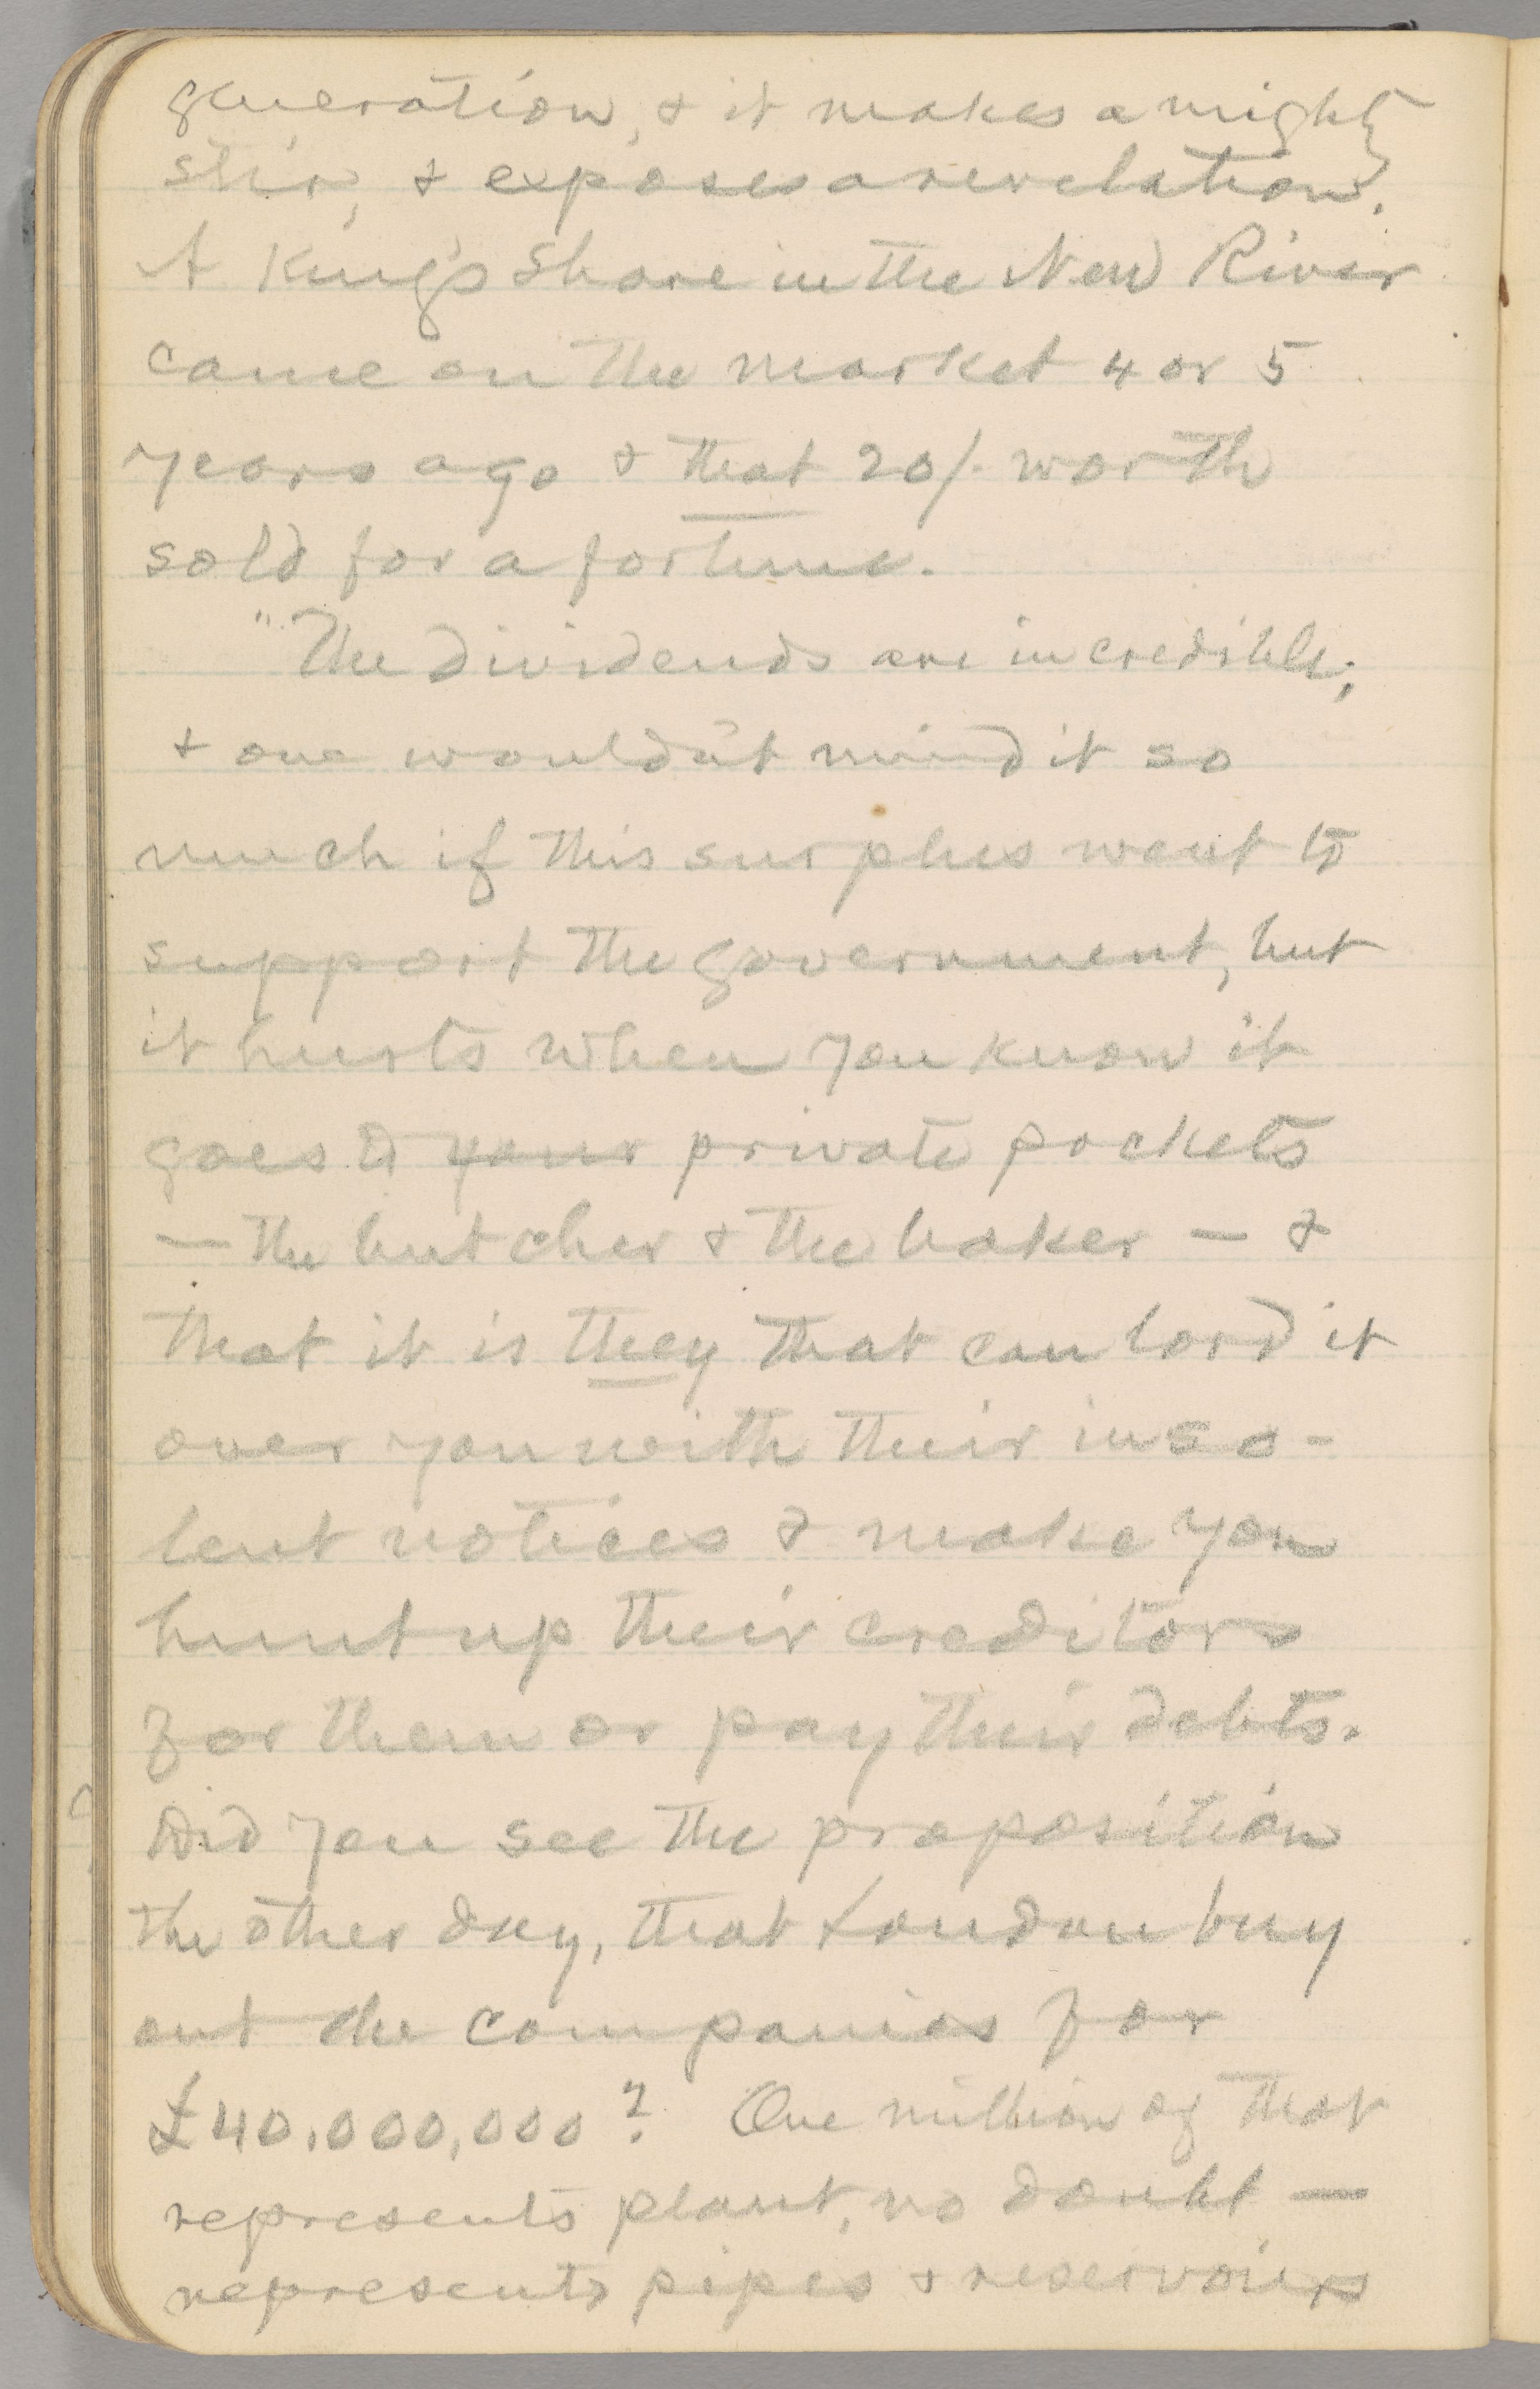 generation, & it makes a mighty
stir, & exposes a revelation.
A King's Share in the New River
came on the market 4 or 5
years ago & that 20/. worth
sold for a fortune.
"The dividends are incredible;
& one wouldn't mind it so
much if this surplus went to
support the government, but
it hurts when you know it
goes to your private pockets
— the butcher & the baker — &
that it is they that can lord it
over you with their inso-
lent notices & make you
hunt up their creditors
for them or pay their debts.
Did you see the proposition
the other day, that London buy
out the companies for
£40,000,000? One million of that
represents plant, no doubt —
represents pipes & reservoirs